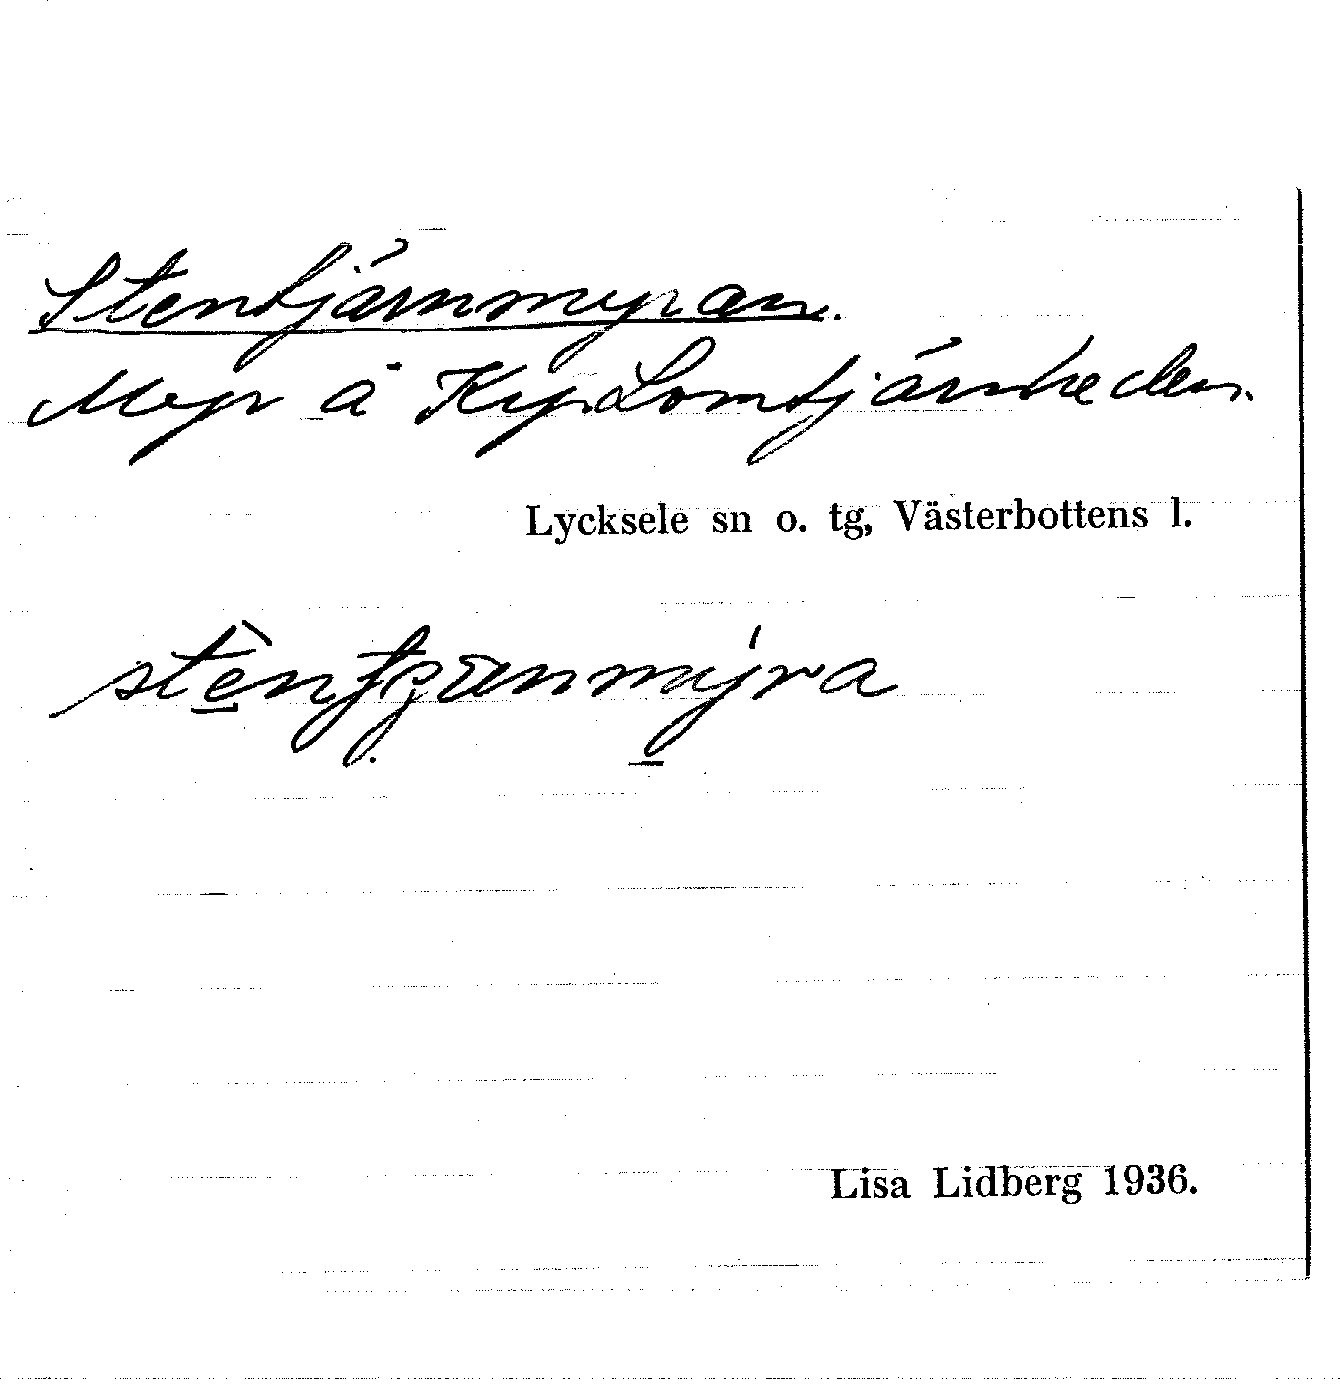 Stentjärnmyran.
Myr å KyrLomtjärnheden.
Lycksele sn o. tg, Västerbottens l.
Lisa Lidberg 1936.